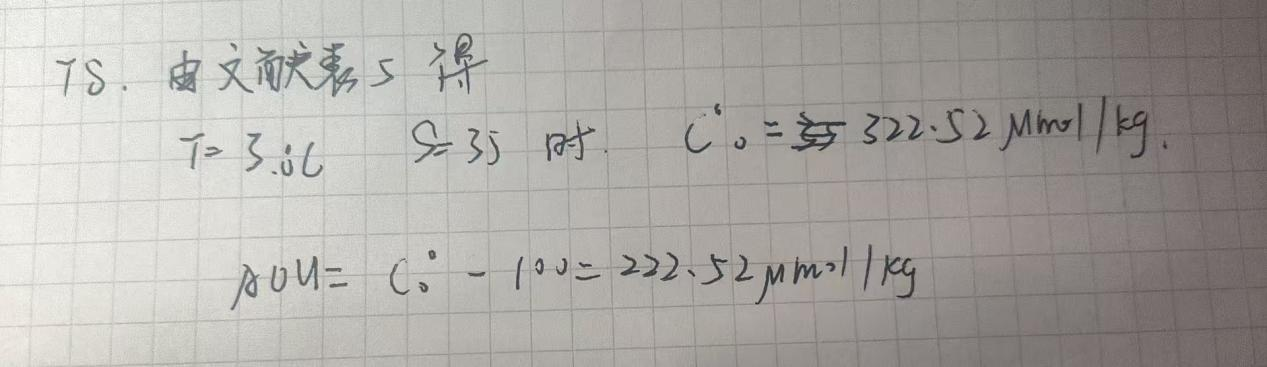 T8. 由文献表5 得
T=3.0℃ S=35 时. C°₀=322.52 μmol/kg.
AOU= C°₀ - 100= 222.52μmol/kg